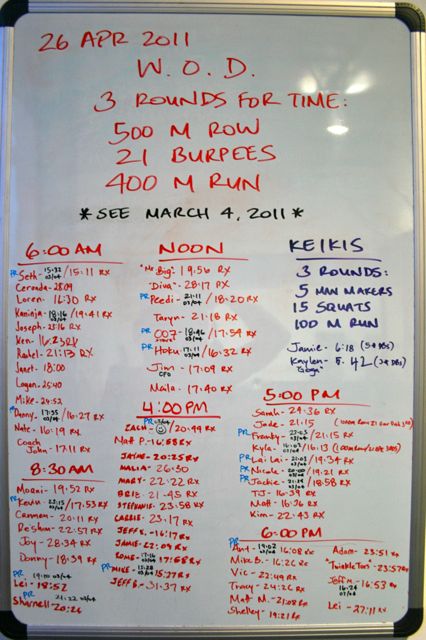 26 APR 2011
W.O.D.
3 ROUNDS FOR TIME:
500 M ROW
21 BURPEES
400 M RUN
*SEE MARCH 4, 2011*
6:00 AM
PR Seth - 15:32 03/04 / 15:11 RX
Ceronda - 28:09
Loren - 16:30 RX
Kaninja - 18:16 03/04 / 19:41 RX
Joseph - 25:16 RX
Ken - 16:23 RX
Rahel - 21:13 RX
Janet - 18:00
Logan - 25:40
Mike - 24:52
PR Danny - 17:35 03/04 / 16:27 RX
Nate - 16:19 RX
Coach
John - 17:11 RX
8:30 AM
Moani - 19:52 RX
PR Kevin - 23:15 03/04 / 17:53 RX
Carmen - 20:11 RX
Deshun - 22:57 RX
Joy - 28:34 RX
Donny - 18:39 RX
PR 19:00 03/04
Lei - 18:52
PR 21:22 03/04
Sharnell 20:26
NOON
"Mr. Big" 19:56 RX
"Diva" - 28:17 RX
PR Reedi - 21:11 03/04 / 18:20 RX
Taryn - 21:18 RX
PR 007 - 18:46 03/04 / 17:59 RX
PR Hoku 17:11 03/04 / 16:32 RX
Jim - 17:09 RX
CFO
Maila - 17:40 RX
4:00 PM
PR 03/04
ZACH - / 20:49 RX
Matt P. - 16:58 RX
JAYNE - 20:25 RX
MALIA - 26:30
MARY - 22:22 RX
BRIE - 21:45 RX
STEPHANIE - 23:58 RX
CARRIE - 23:17 RX
JEFF K. - 16:17 RX
JAMIE - 22:09 RX
ROME - 17:16 03/04 17:58 RX
PR MIKE - 15:28 03/04 15:27 RX
JEFF B. - 31:37 RX
KEIKIS
3 ROUNDS:
5 MAN MAKERS
15 SQUATS
100 M RUN
Jamie - 6:18 (5# DBs)
Kaylen - 5:42 (3# DBs)
5:00 PM
Sarah - 24:36 RX
Jade - 21:15
PR Franky - 22:03 03/04 / 21:15 RX
Kyla - 16:03 03/04 / 16:13
PR Lai Lai - 21:03 03/04 / 19:34 RX
PR Nicole - 20:00 03/04 / 19:21 RX
PR Jackie - 21:29 03/04 / 18:58 RX
TJ - 16:39 RX
Matt - 16:36 RX
Kim - 22:43 RX
6:00 PM
PR Ant - 19:02 03/04 16:08 RX
Mike B. - 16:26 RX
Vic - 22:49 RX
Tracy - 24:26 RX
Matt M. - 21:08 RX
Shelley - 19:21 RX
Adam - 23:51 RX
"Twinkle Toes" - 23:57 RX
PR Jeff N. - 16:53 RX
16:24 03/04
Lei - 27:11 RX